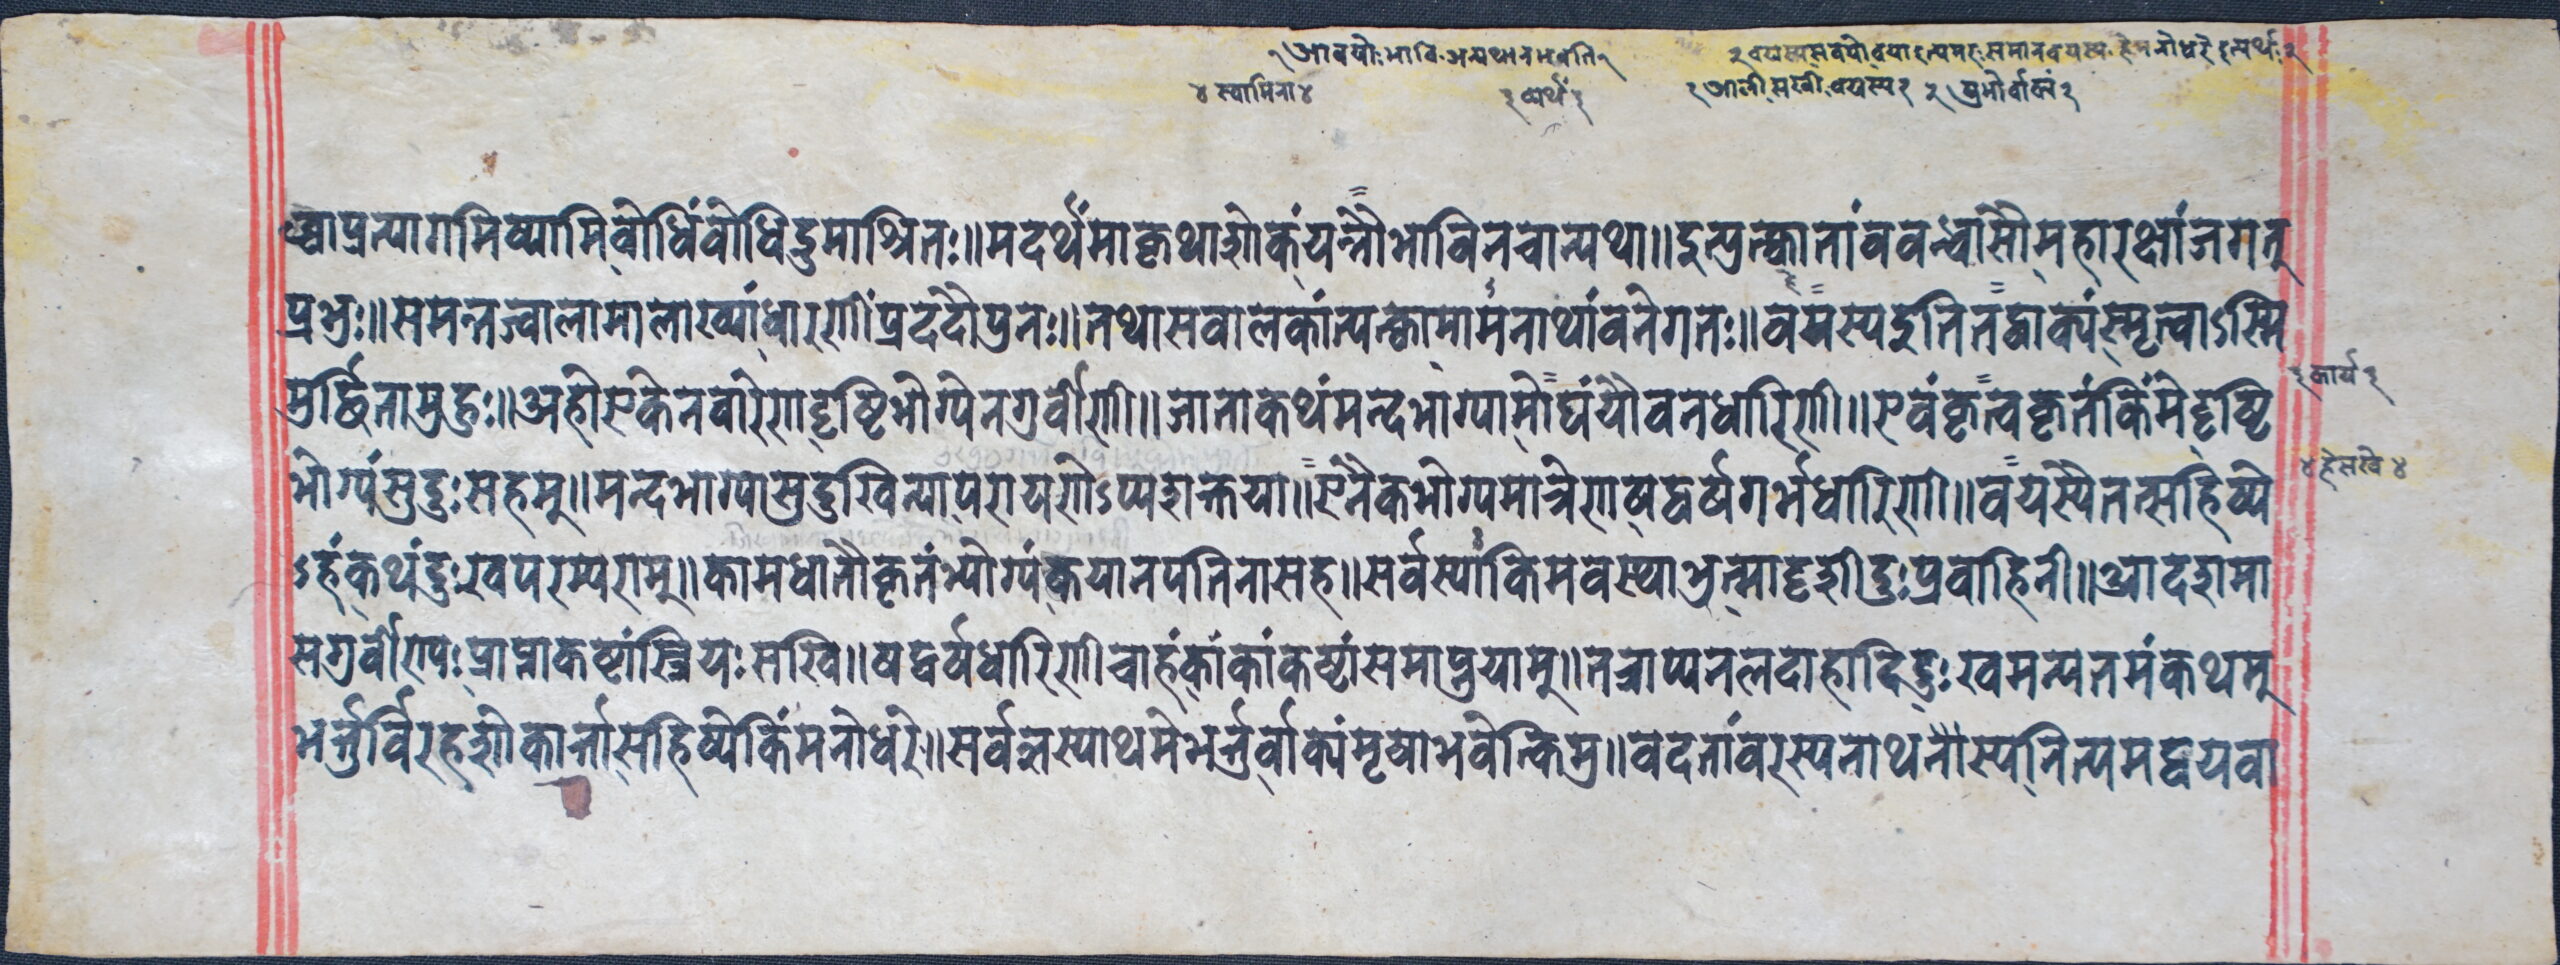 १ आवयोः भावि अन्यथा न भवति १
४ स्वामिना ४
१ व्यर्थं १
१ आली सखी वयस्य १ २ प्रभोर्वाक्यं २
ब्ध्वा प्रत्यागमिष्यामि बोधिं बोधिद्रुमाश्रितः॥ मदर्थं मा कृथा शोकं यन्नौ भावि न चान्यथा॥ इत्युत्क्वा तां बबन्धासौ महारक्षां जगत्
प्रभुः॥ समन्तज्वालामालाख्यां धारणीं प्रददौ पुनः॥ तथा सबालकां त्यत्क्वा मामनाथां वने गतः॥ वयस्य इति तद्वाक्यं स्मृत्वाऽस्मि
मूर्छिता मुहुः॥ अहो एकेन वारेण दृष्टिभोग्येन गुर्वीणी॥ जाता कथं मन्दभाग्या मोघं यौवनधारिणी॥ एवं कृत्य कृतं किं मे दृष्टि
भोग्यं सुदुःसहम्॥ मन्दभाग्या सुदुखिन्या परायणेऽप्यशक्तया॥ एनैकभोग्यमात्रेण षड्वर्षगर्भधारिणी॥ वयस्यैतत्सहिष्ये
ऽहं कथं दुःखपरम्पराम्॥ कामधातौ कृतं भोग्यं कया न पतिना सह॥ सर्वस्यां किमवस्थाभून्मादृशी दुःप्रवाहिनी॥ आदशमा
स गुर्वीण्यः प्राप्ता कष्टां स्त्रियः सखि॥ षड्वर्षधारिणी चाहं कां कां कष्टां समाप्नुयाम्॥ तत्राप्यनलदाहादि दुःखमन्यतमं कथम्
भर्त्तुर्विरहशोकार्त्ता सहिष्ये किं मनोधरे॥ सर्वज्ञस्याथ मे भर्त्तुर्वाक्यं मृषा भवेत्किमु॥ वदतां वरस्य नाथ नास्य नित्यमद्वयवा
१ कार्य १
४ हे सखे ४